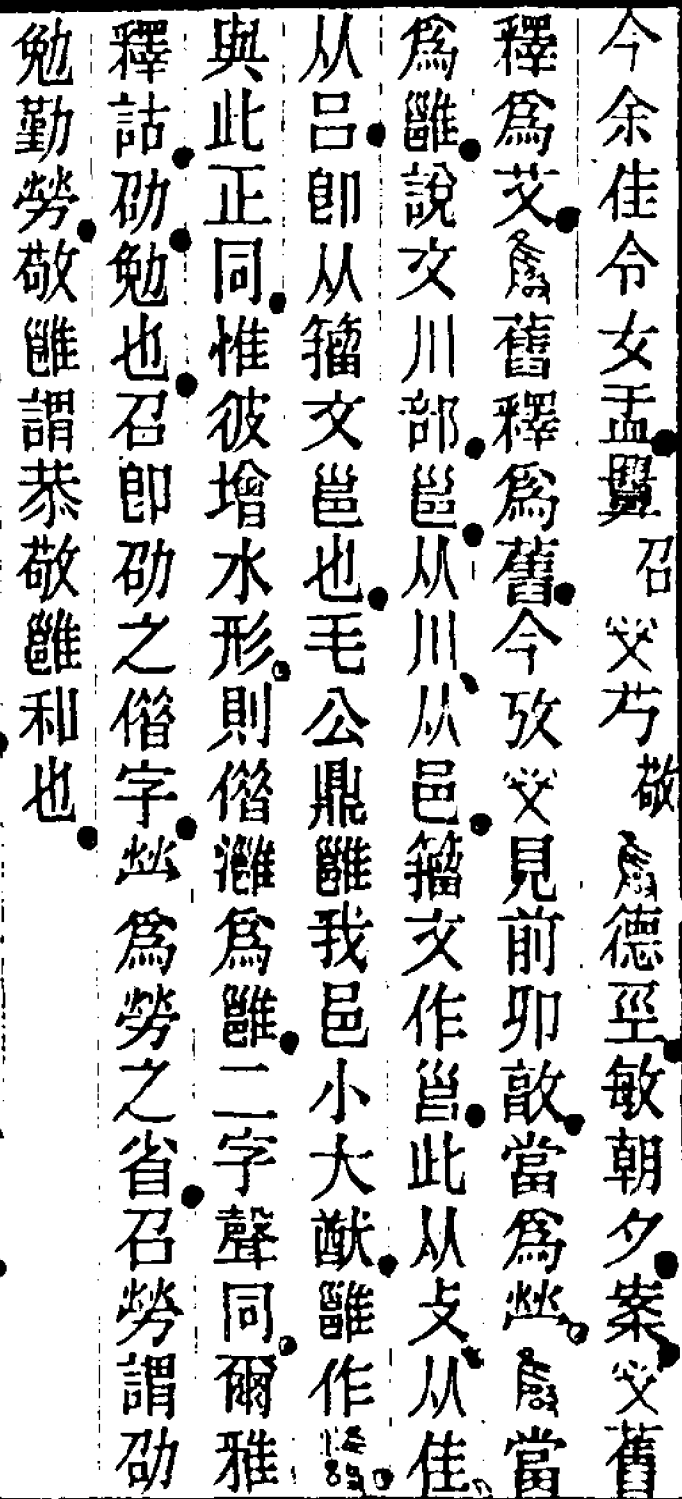 今余隹令女盂㽙召芍敬德巠敏朝夕案舊
釋爲芟舊釋爲舊今攷見前卯敦當爲當
爲雝說文川部邕从川从邑籀文作𡿿此从攴从隹
从吕卽从籀文邕也毛公鼎雝我邑小大猷雝作
與此正同惟彼增水形則偣灉爲雝二字聲同爾雅
釋詁劭勉也召卽劭之偣字爲勞之省召勞謂劭
勉勤勞敬雝謂恭敬雝和也